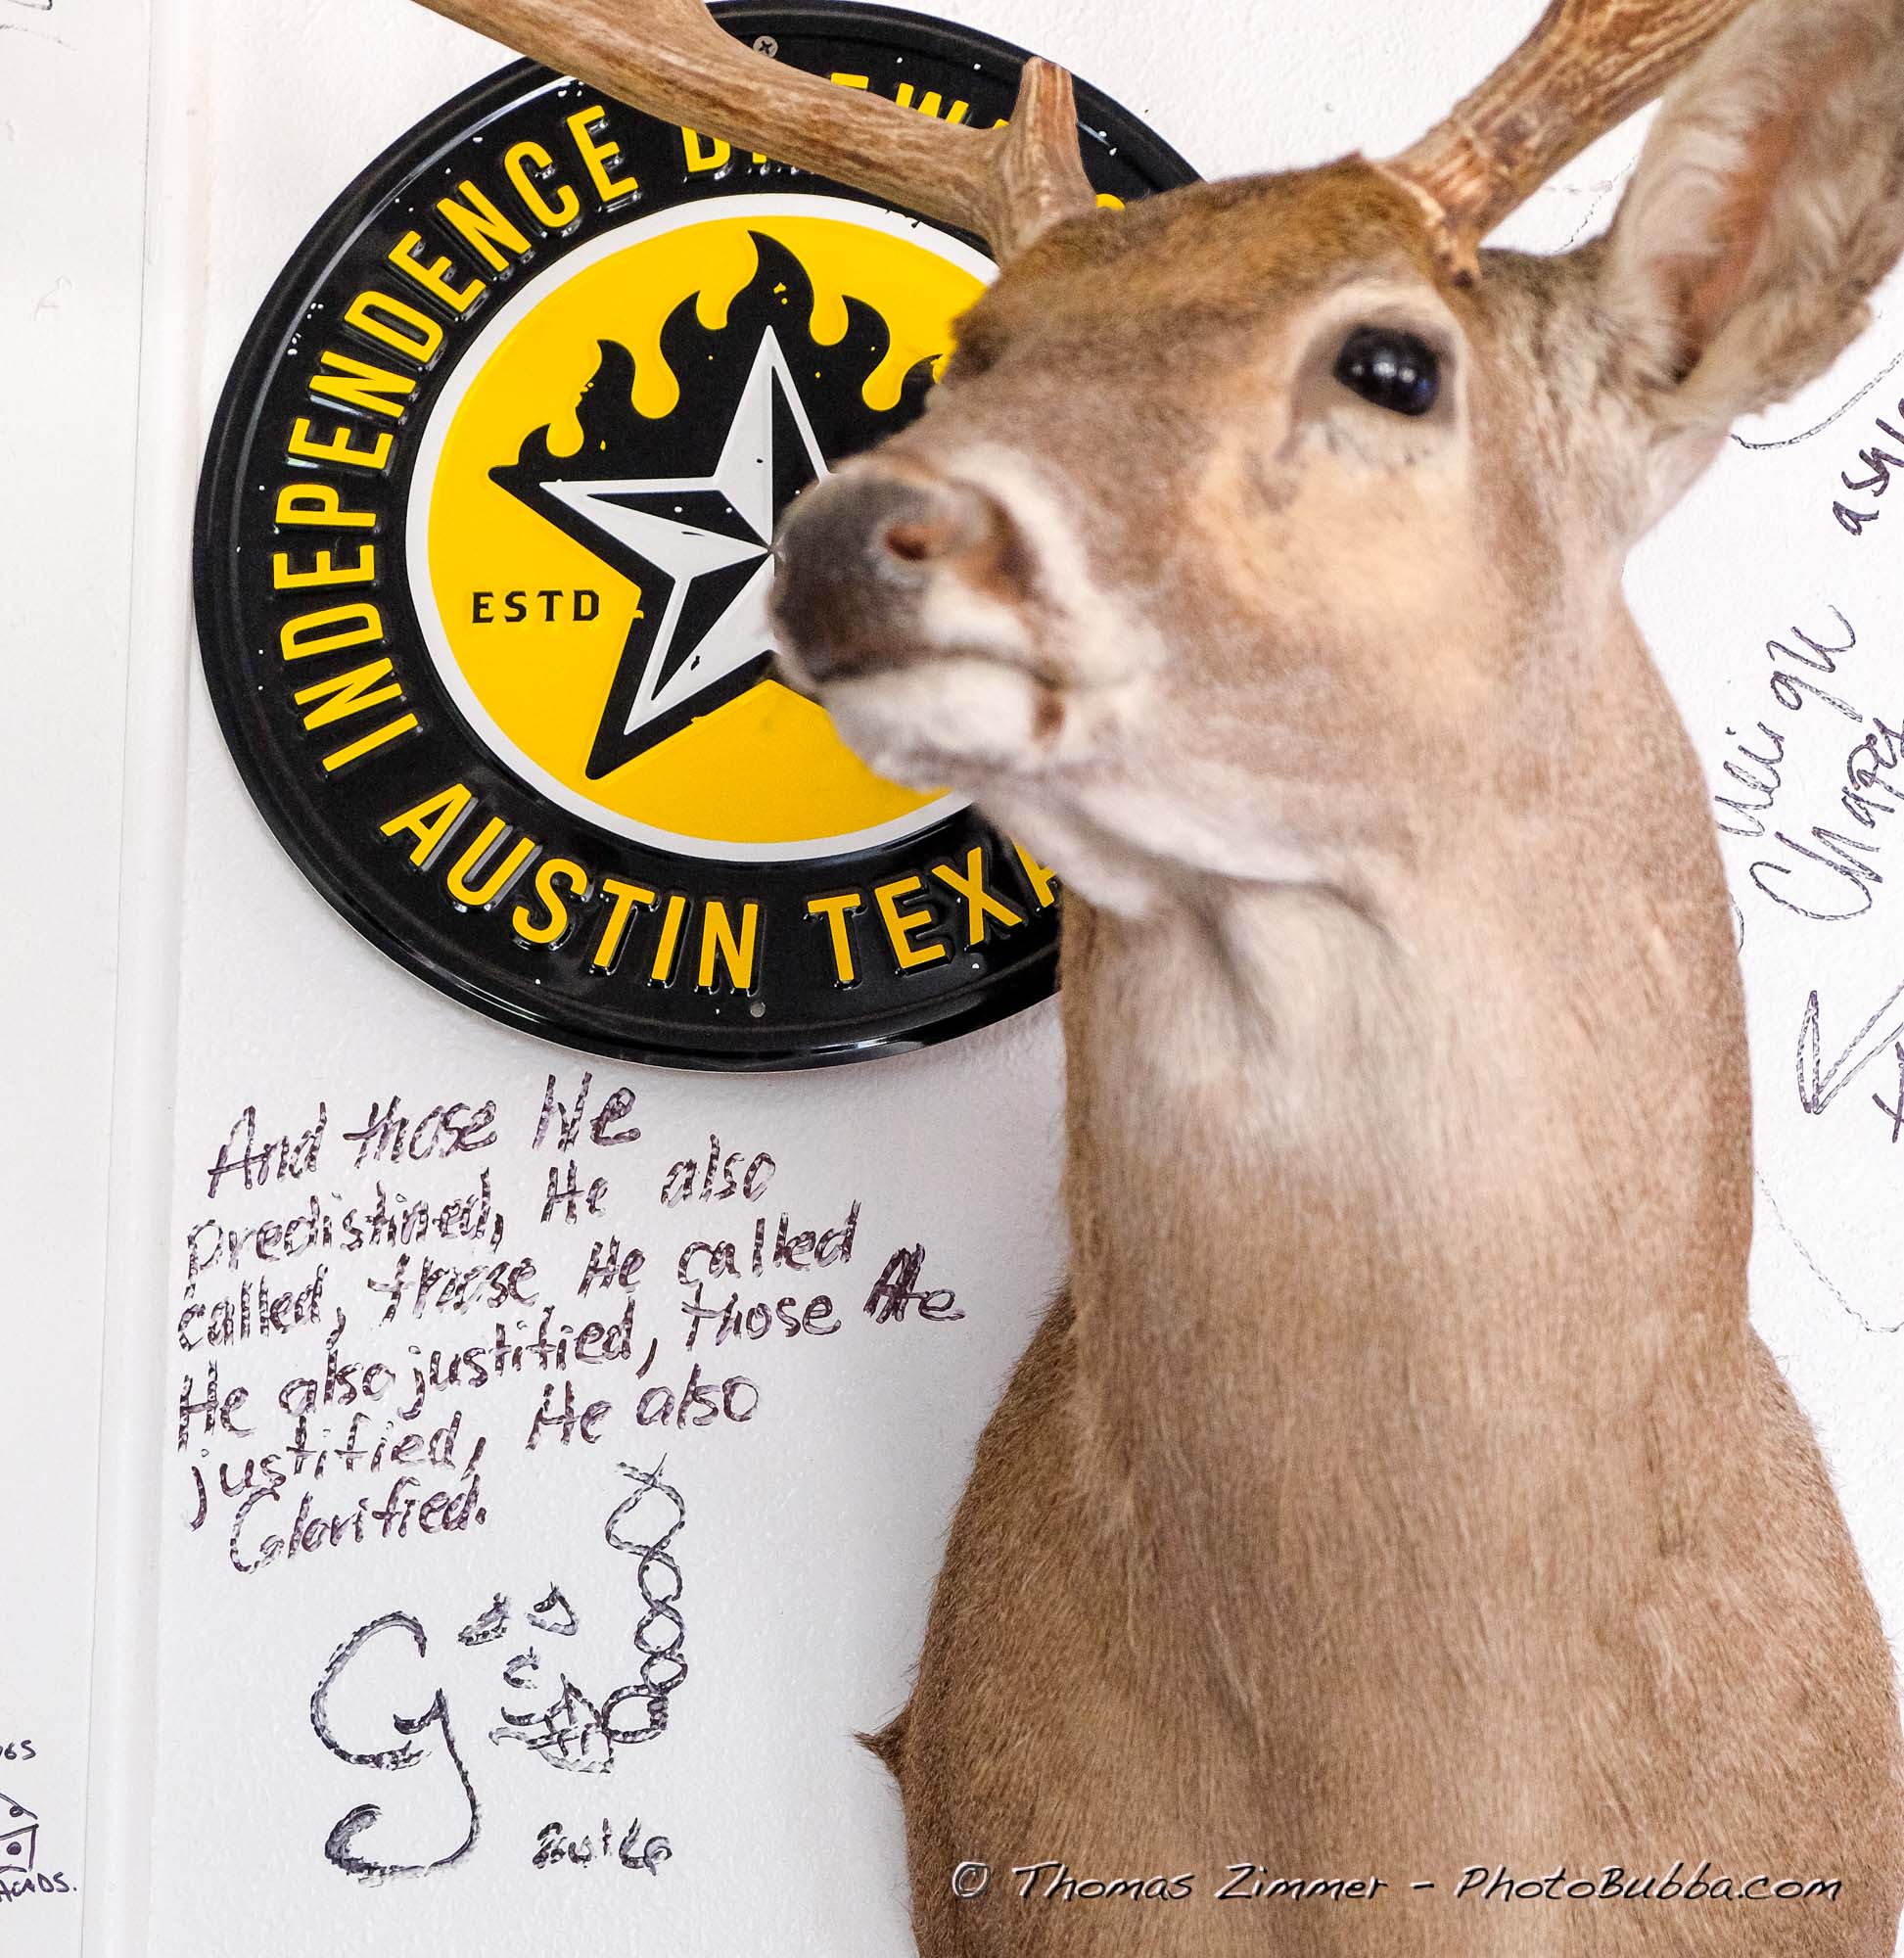 INDEPENDENCE
AUSTIN TEXA
ESTD
And those He
predistined, He also
called, those He called
He also justified, those He
justified, He also
Glorified.
2016
Chapes
© Thomas Zimmer - PhotoBubba.com